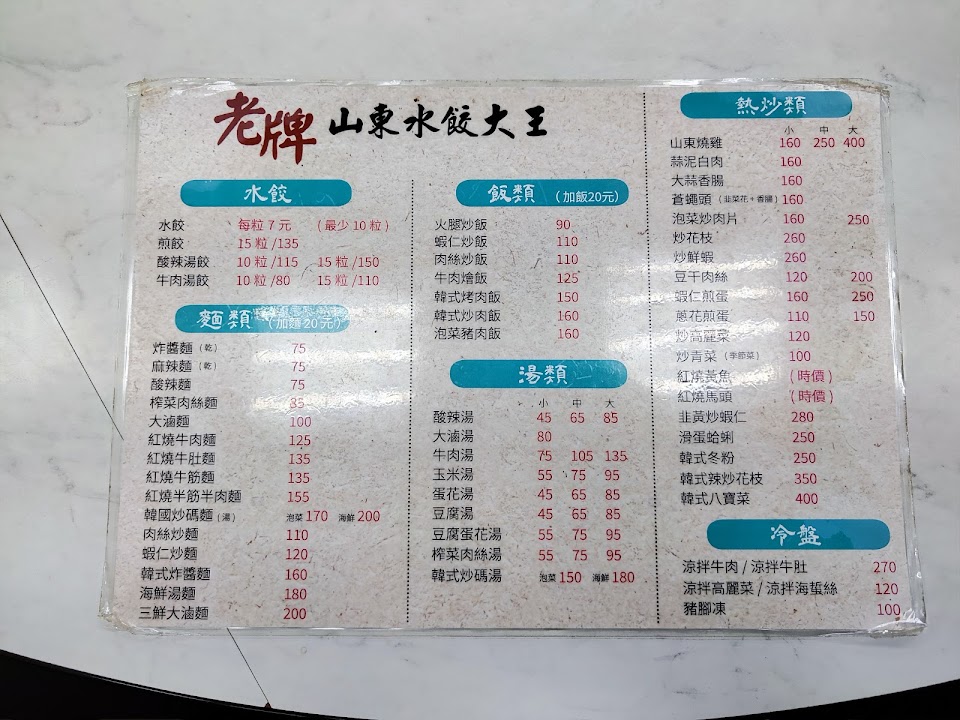 老牌 山東水餃大王
水餃
水餃 每粒 7 元 (最少 10 粒)
煎餃 15 粒 /135
酸辣湯餃 10 粒 /115 15 粒 /150
牛肉湯餃 10 粒 /80 15 粒 /110
麵類 (加麵 20 元)
炸醬麵 (乾) 75
麻辣麵 (乾) 75
酸辣麵 75
榨菜肉絲麵 85
大滷麵 100
紅燒牛肉麵 125
紅燒牛肚麵 135
紅燒牛筋麵 135
紅燒半筋半肉麵 155
韓國炒碼麵 (湯) 泡菜 170 海鮮 200
肉絲炒麵 110
蝦仁炒麵 120
韓式炸醬麵 160
海鮮湯麵 180
三鮮大滷麵 200
飯類 (加飯20元)
火腿炒飯 90
蝦仁炒飯 110
肉絲炒飯 110
牛肉燴飯 125
韓式烤肉飯 150
韓式炒肉飯 160
泡菜豬肉飯 160
湯類
小 中 大
酸辣湯 45 65 85
大滷湯 80
牛肉湯 75 105 135
玉米湯 55 75 95
蛋花湯 45 65 85
豆腐湯 45 65 85
豆腐蛋花湯 55 75 95
榨菜肉絲湯 55 75 95
韓式炒碼湯 泡菜 150 海鮮 180
熱炒類
小 中 大
山東燒雞 160 250 400
蒜泥白肉 160
大蒜香腸 160
蒼蠅頭 (韭菜花+香腸) 160
泡菜炒肉片 160 250
炒花枝 260
炒鮮蝦 260
豆干肉絲 120 200
蝦仁煎蛋 160 250
蔥花煎蛋 110 150
炒高麗菜 120
炒青菜 (季節菜) 100
紅燒黃魚 (時價)
紅燒馬頭 (時價)
韭黃炒蝦仁 280
滑蛋蛤蜊 250
韓式冬粉 250
韓式辣炒花枝 350
韓式八寶菜 400
冷盤
涼拌牛肉 / 涼拌牛肚 270
涼拌高麗菜 / 涼拌海蜇絲 120
豬腳凍 100